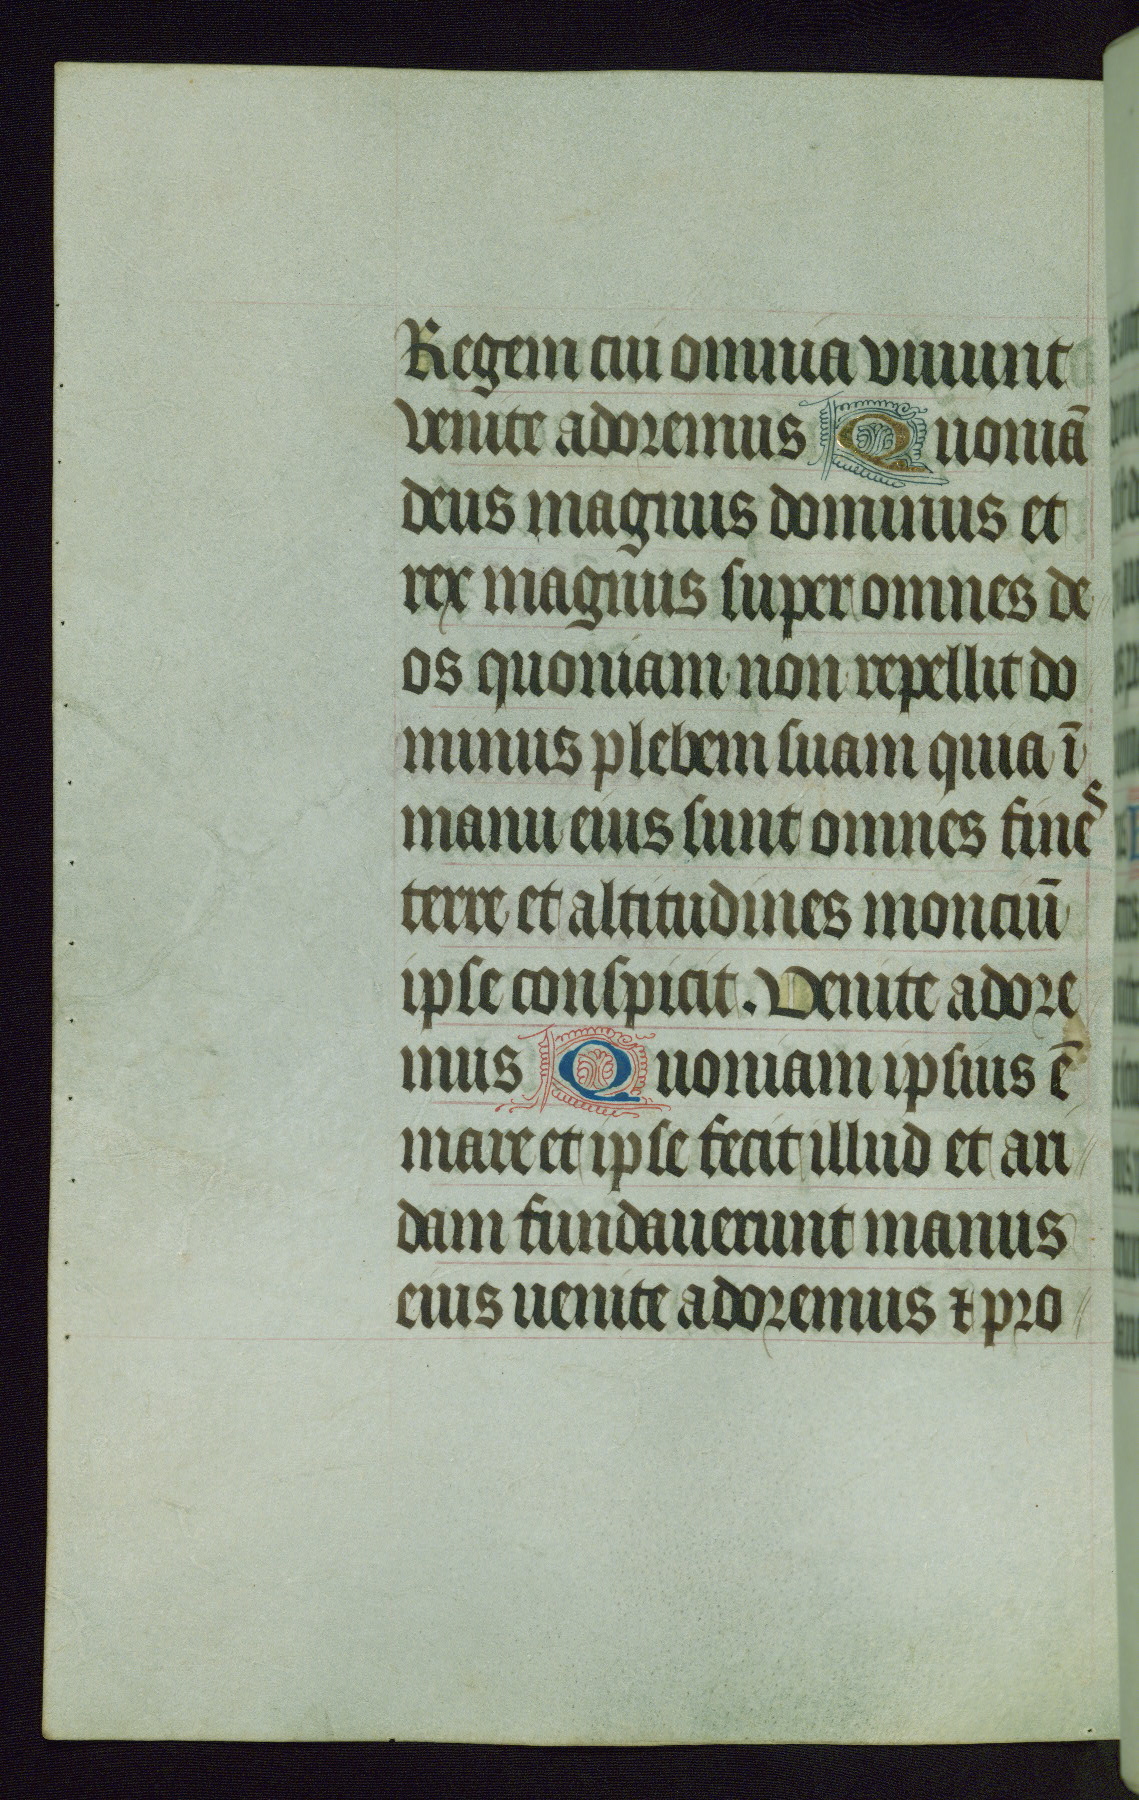 Regem cui omnia viuunt
venite adoremus Quoniā
deus magnus dominus et
rex magnus super omnes de
os quoniam non repellit do
minus plebem suam quia ī
manu eius sunt omnes fines
terre et altitudines monciū
ipse conspicit. Venite adore
mus Quoniam ipsius ē
mare et ipse fecit illud et ari
dam fundauerunt manus
eius uenite adoremus ⁊ pro